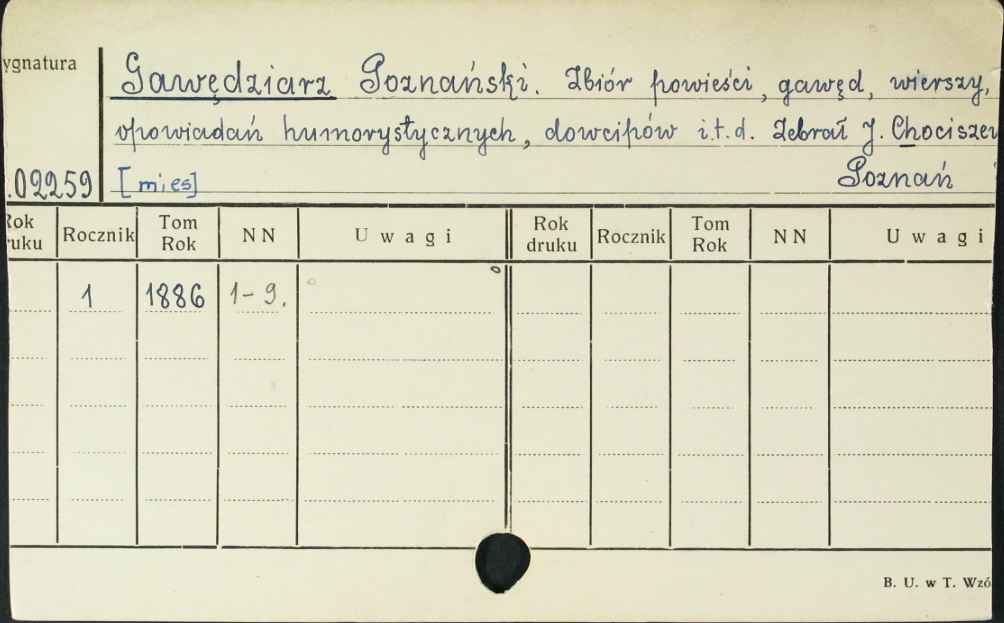 ygnatura
Gawędziarz Poznański. Zbiór powieści, gawęd, wierszy,
opowiadań humorystycznych, dowcipów i.t.d. Zebrał J. Chociszew
.02259 [mies] Poznań
Rok druku Rocznik Tom Rok NN Uwagi Rok druku Rocznik Tom Rok NN Uwagi
1 1886 1-9.
B. U. w T. Wzó